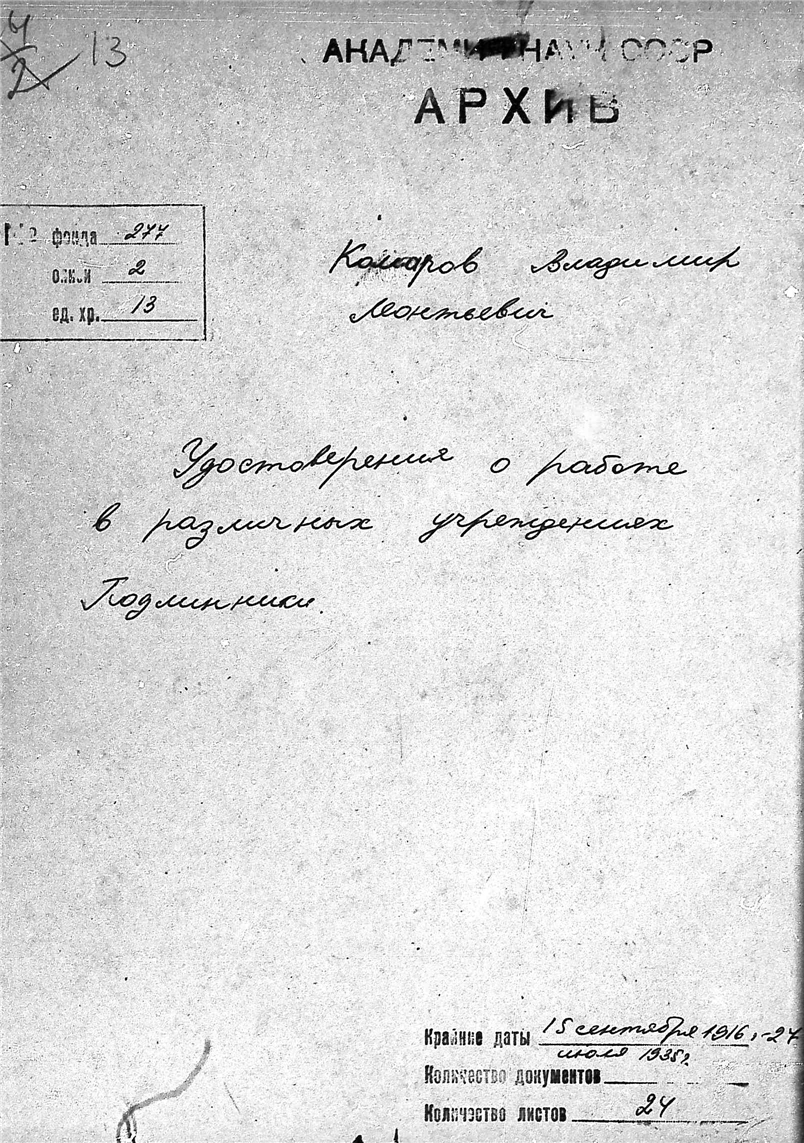 4
2
13
АКАДЕМИЯ НАУК СССР
АРХИВ
№ фонда 277
описи 2
ед. хр. 13
Комаров Владимир
Леонтьевич
Удостоверения о работе
в различных учреждениях
Подлинники.
Крайние даты 15 сентября 1916г.-27
июля 1935г.
Количество документов
Количество листов 24